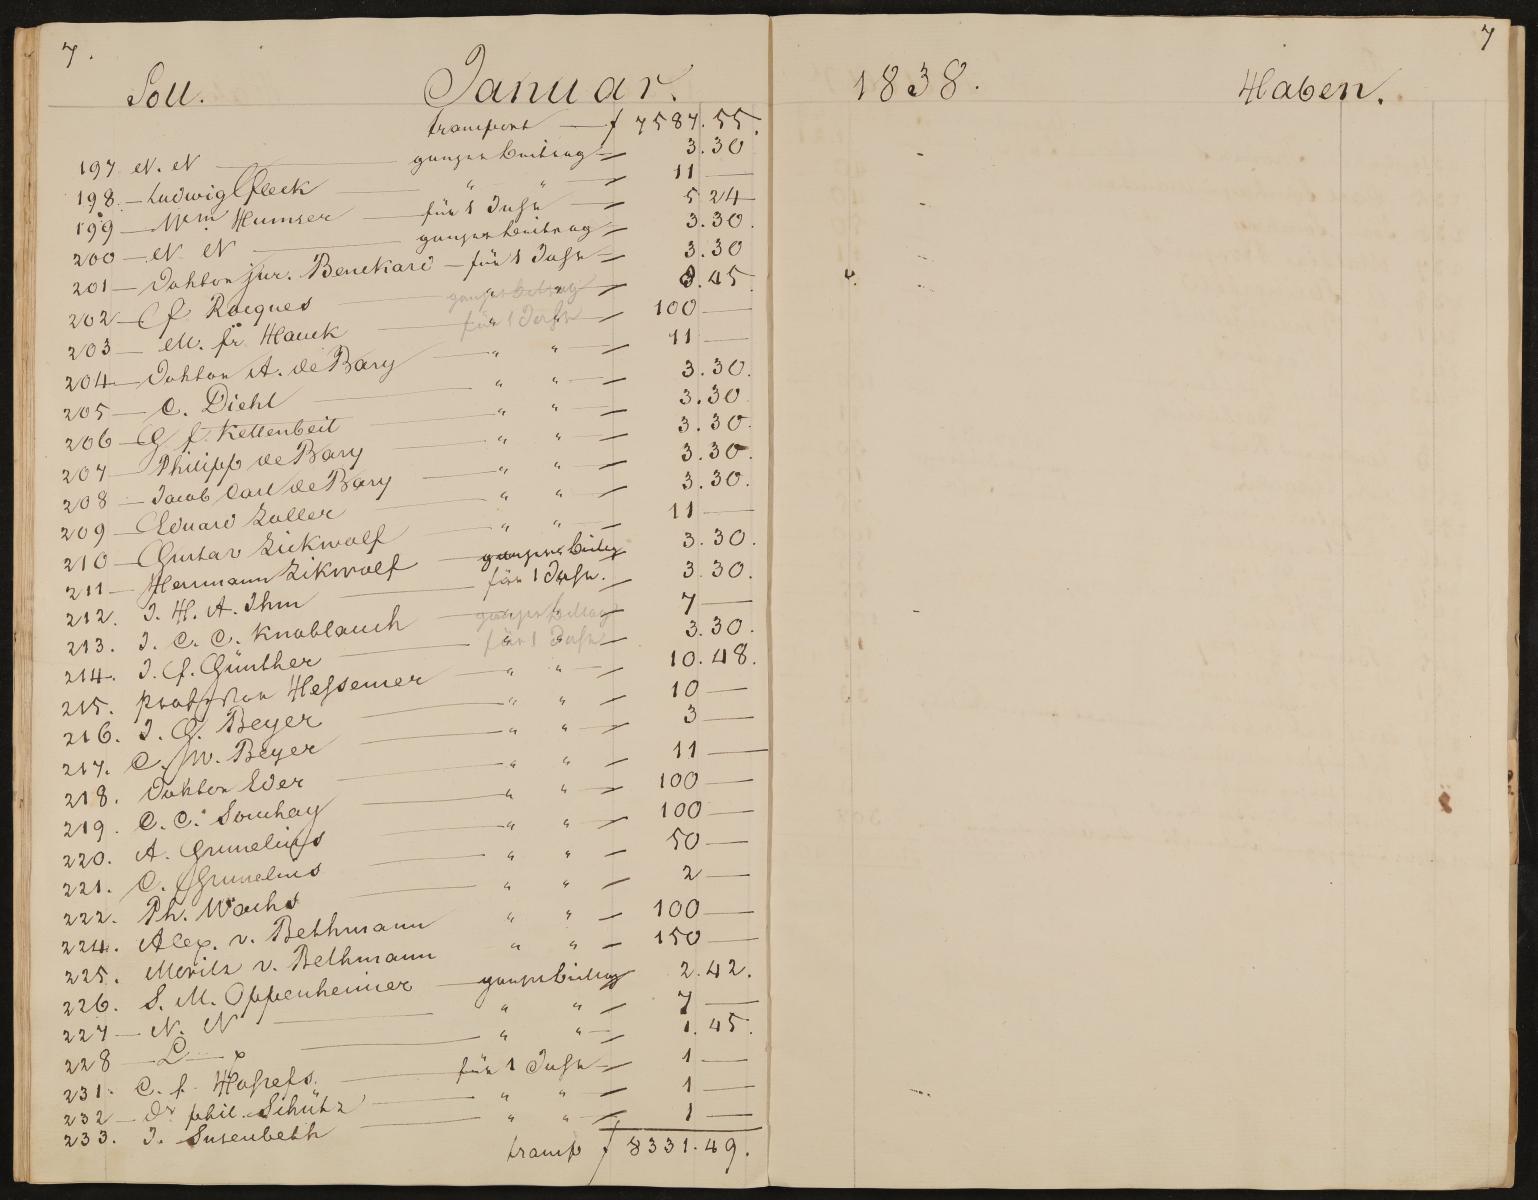 7.
Soll. Januar.
Transport — f 7587.55.
197 N. N — ganzer Beitrag — 3.30
198. — Ludwig Fleck — " " — 11 —
199 — Wm Humser — für 1 Jahr — 5 24
200 — N. N — ganzer Beitrag — 3.30.
201 — Doktor jur. Benckard — für 1 Jahr — 3.30
202 — F. Racques — ganzer Beitrag " " — 8.45
203 — M. fr. Hauck — für 1 Jahr " " — 100 —
204 — Doktor A. de Bary — " " — 11 —
205 — C. Diehl — " " — 3.30.
206 — G f. Kellenbeit — " " — 3.30
207 — Philipp de Bary — " " — 3.30.
208 — Jacob Carl de Bary — " " — 3.30.
209 — Eduard Zoller — " " — 3.30.
210 — Gustav Zickwolf — " " — 11 —
211 — Herrmann Zikwolf — ganzer Beitrag — 3.30.
212. J. H. A. Ihm — für 1 Jahr. — 3.30.
213. J. C. C. Knoblauch — ganzer Beitrag " " — 7 —
214. J. F. Günther — für 1 Jahr " " — 3.30.
215. Professor Hessemer — " " — 10.48.
216. J. G. Beyer — " " — 10 —
217. C. W. Beyer — " " — 3 —
218. Doktor Eder — " " — 11 —
219. C. C. Souchay — " " — 100 —
220. A. Grunelius — " " — 100 —
221. C. Grunelius — " " — 50 —
222. Ph. Wachs — " " — 2 —
224. Alex. v. Bethmann — " " — 100 —
225. Moritz v. Bethmann — " " — 150 —
226. S. M. Oppenheimer — ganzer Beitrag 2.42.
227 — N. N — " " — 7 —
228 — L — p — " " — 1.45.
231. C. f. — für 1 Jahr — 1 —
232 — Dr phil. Schütz — " " — 1 —
233. J. Susenbeth — " " — 1 —
Transp f 8331.49.
7
1838. Haben.